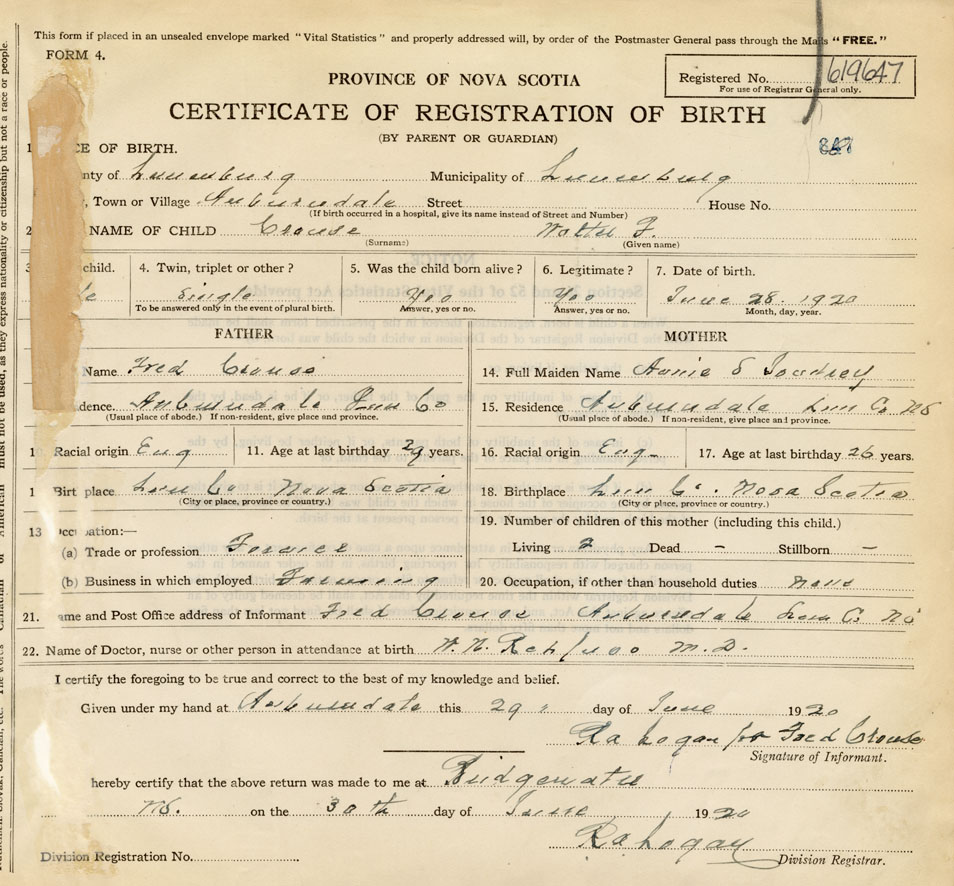 This form if placed in an unsealed envelope marked "Vital Statistics" and properly addressed will, by order of the Postmaster General pass through the Mails "FREE."
FORM 4.
PROVINCE OF NOVA SCOTIA
Registered No. 619647
For use of Registrar General only.
CERTIFICATE OF REGISTRATION OF BIRTH
(BY PARENT OR GUARDIAN)
1 CE OF BIRTH.
nty of Lunenburg Municipality of Lunenburg
, Town or Village Auburndale Street House No.
(If birth occurred in a hospital, give its name instead of Street and Number)
2 NAME OF CHILD Crouse Walter F.
(Surname) (Given name)
3 child. 4. Twin, triplet or other? 5. Was the child born alive? 6. Legitimate? 7. Date of birth.
le Single Yes Yes June 28. 1920
To be answered only in the event of plural birth. Answer, yes or no. Answer, yes or no. Month, day, year.
FATHER MOTHER
Name Fred Crouse 14. Full Maiden Name Annie S
dence. Auburndale Lun Co 15. Residence Auburndale Lun Co NS
(Usual place of abode.) If non-resident, give place and province. (Usual place of abode.) If non-resident, give place and province.
1 Racial origin Eng 11. Age at last birthday 29 years. 16. Racial origin Eng. 17. Age at last birthday 26 years.
1 Birt place Lun Co Nova Scotia 18. Birthplace Lun Co. Nova Scotia
(City or place, province or country.) (City or place, province or country.)
13 occupation:— 19. Number of children of this mother (including this child.)
(a) Trade or profession Farmer Living 2 Dead – Stillborn –
(b) Business in which employed Farming 20. Occupation, if other than household duties None
21. ame and Post Office address of Informant Fred Crouse Auburndale Lun Co NS
22. Name of Doctor, nurse or other person in attendance at birth M.D.
I certify the foregoing to be true and correct to the best of my knowledge and belief.
Given under my hand at Auburndale this 29 " day of June 1920
Ra Logan for Fred Crouse
Signature of Informant.
hereby certify that the above return was made to me at Bridgewater
NS. on the 30th day of June 1920
Ra Logan
Division Registration No. Division Registrar.